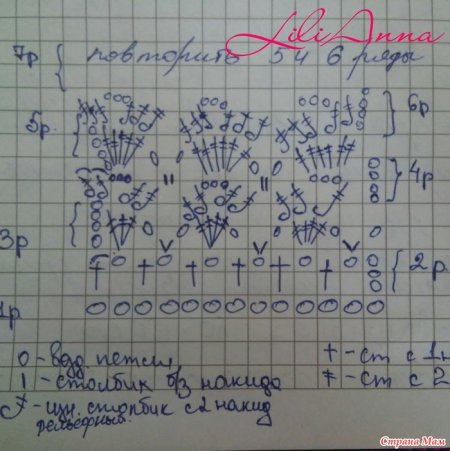 LiliAnna
7р повторить 5 и 6 ряды
5р. 6р
4р
3р
2р
1р
0 - возд. петли + - ст с 1н
1 - столбик б/з накида ‡ - ст с 2
- изн. столбик с 2 накид
рельефный.
Страна Мам